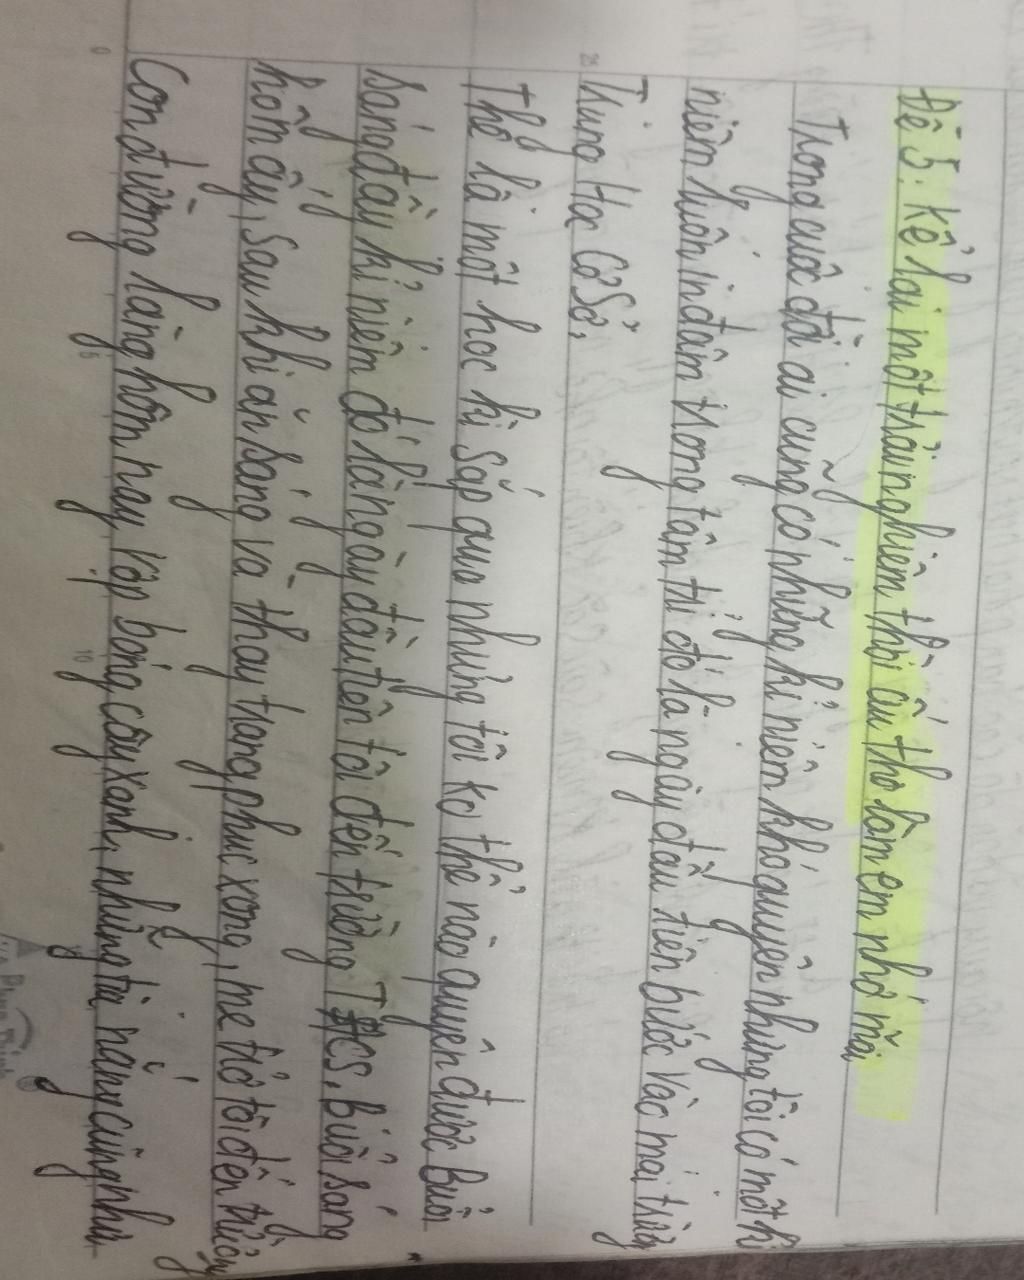 Đề 5. Kể lại một trải nghiệm thời ấu thơ làm em nhớ mãi
Trong cuộc đời ai cũng có những kỉ niệm khó quyên nhưng tôi có một kỉ
niềm luôn in đậm trong tâm trí đó là ngày đầu tiên bước vào mái trường
Trung Học Cơ Sở,
Thế là một học kì sắp qua nhưng tôi ko thể nào quyên được Buổi
sáng đầy kỉ niệm đó là ngày đầu tiên tôi đến trường THCS. Buổi sáng
hôm ấy, sau khi ăn sáng và thay trang phục xong, mẹ trở tôi đến trường
Con đường làng hôm nay rợp bóng cây xanh, những tia nắng cũng như